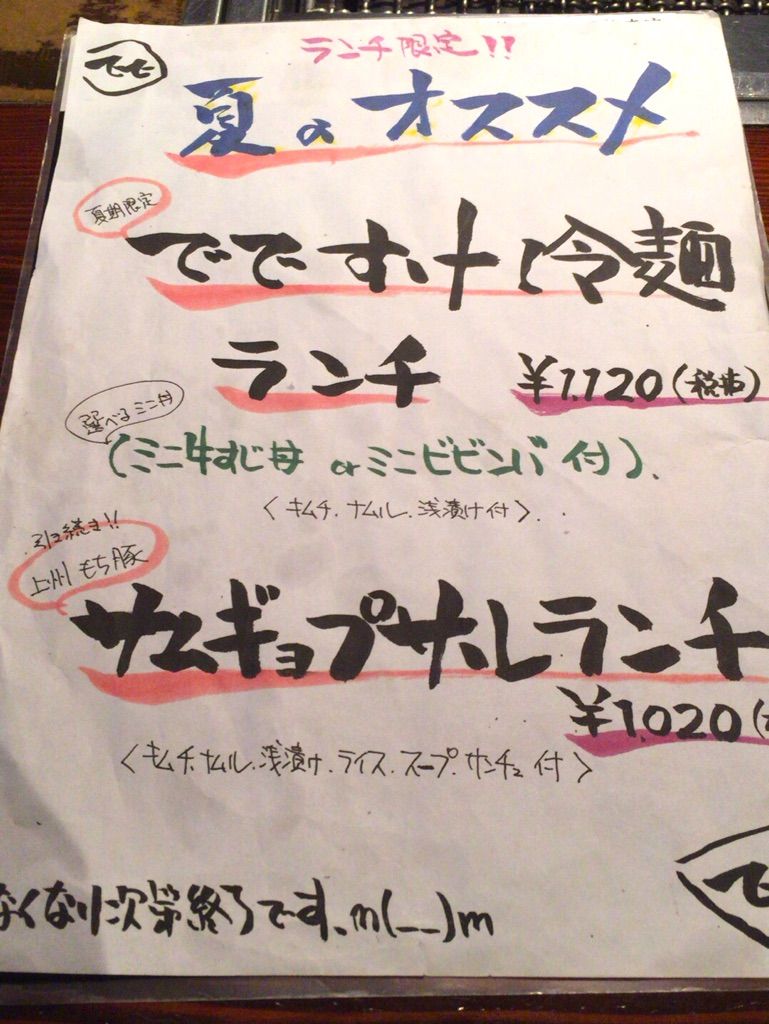 でで
ランチ限定!!
夏のオススメ
夏期限定
でです什し冷麺
ランチ ¥1,120(税抜)
選べるミニ丼
(ミニ牛すじ丼 orミニビビンバ付)
〈キムチ.ナムル.浅漬け付〉
引き続き!!
上州もち豚
サムギョプサルランチ
¥1,020(
〈キムチ.ナムル.浅漬け.ライス.スープ.サンチュ付〉
なくなり次第終了です.m(__)m